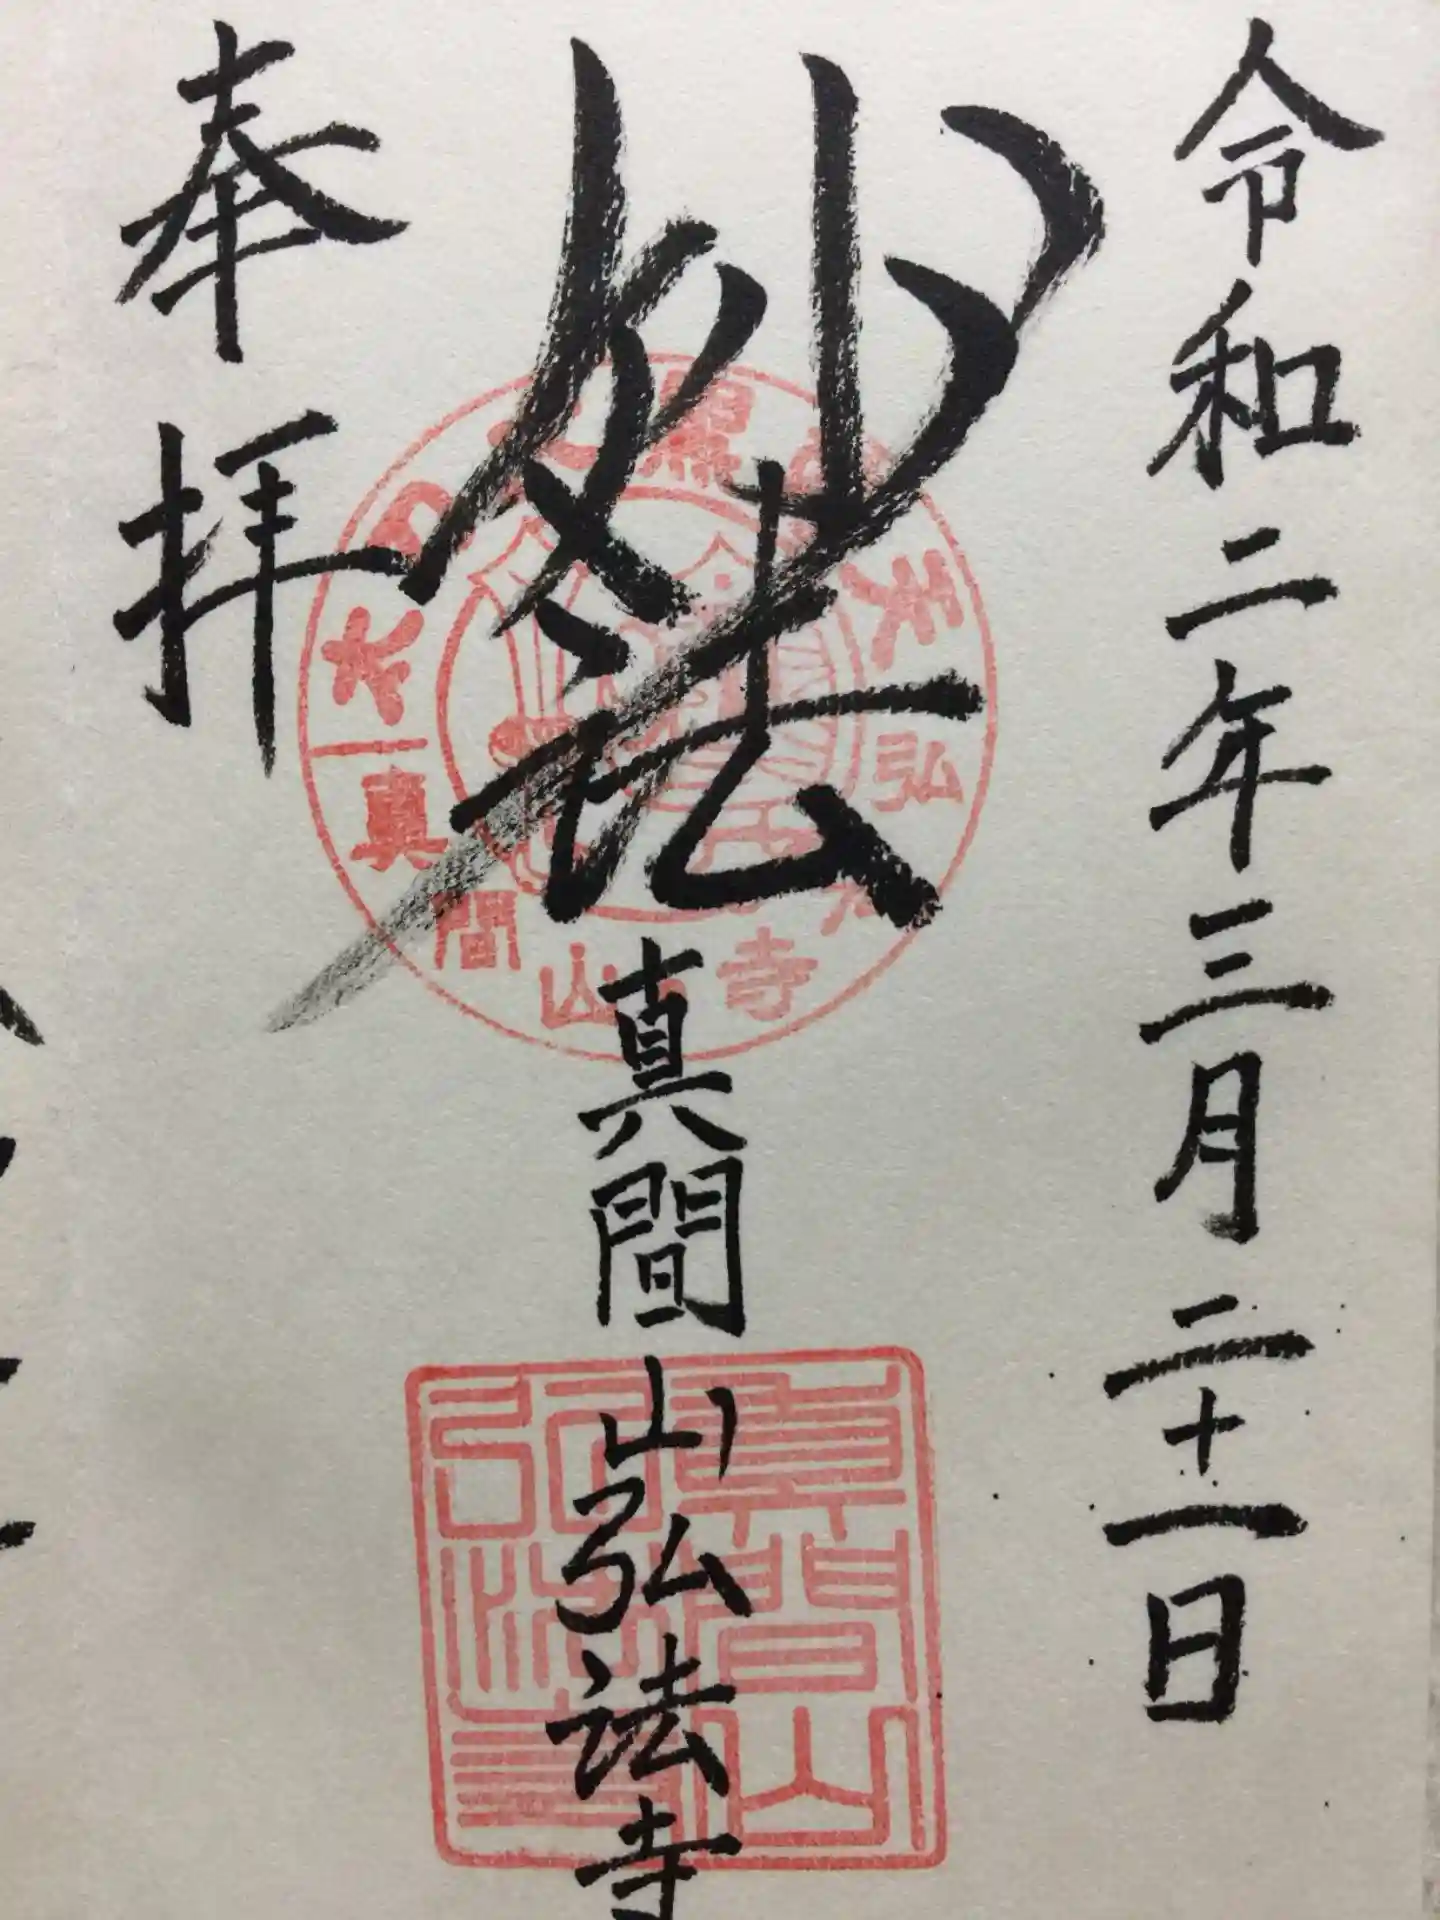 令和二年三月二十一日
妙法
真間山弘法寺
奉拝
黒
天
太
真間山
弘
寺
真間山
弘法寺